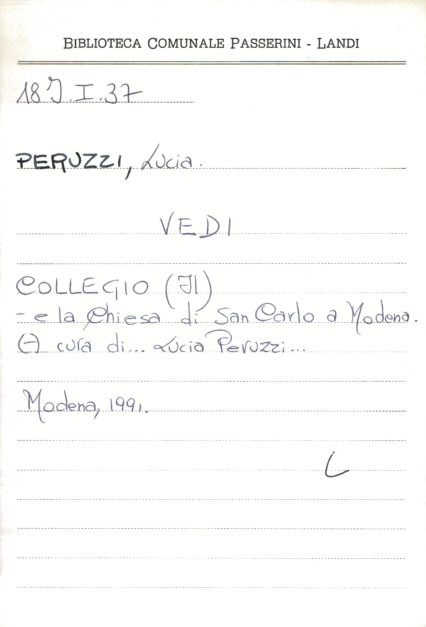 BIBLIOTECA COMUNALE PASSERINI - LANDI
18 J.I.37
PERUZZI, Lucia.
VEDI
COLLEGIO (Il)
- e la Chiesa di San Carlo a Modena.
(-) cura di... Lucia Peruzzi...
Modena, 1991.
L